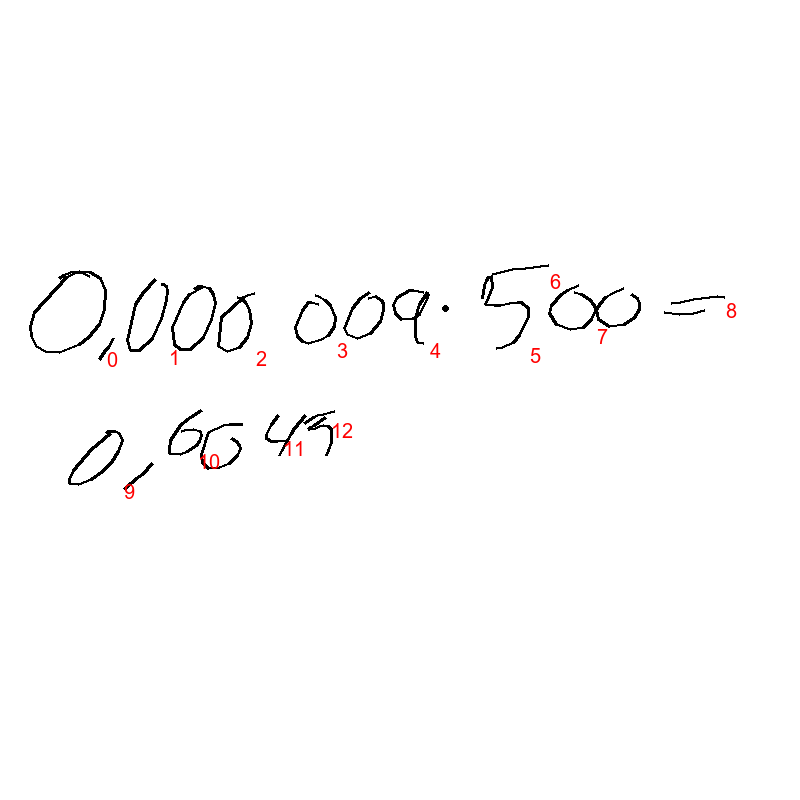 0,000 009 · 500 =
0,0045
0 1 2 3 4 5 6 7 8 9 10 11 12